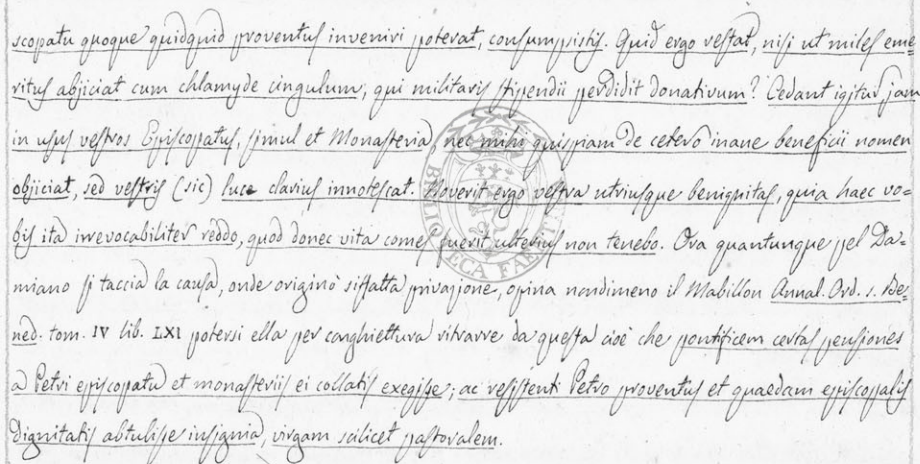 scopatu quoque quidquid proventus inveniri poterat, consumpsistis. Quid ergo restat, nisi ut miles eme-
ritus abjiciat cum chlamyde cingulum, qui militaris stipendii perdidit donativum? Cedant igitur jam
in usus vestros Episcopatus, simul et Monasteria, nec mihi quispiam de cetero inane beneficii nomen
objiciat, sed vestris (sic) luce clarius innotescat. Noverit ergo vestra utriusque benignitas, quia haec vo-
bis ita irrevocabiliter reddo, quod donec vita comes fuerit ulterius non tenebo. Ora quantunque pel Da-
miano si taccia la causa, onde originò siffatta privazione, opina nondimeno il Mabillon Annal. Ord. S. Be-
ned. tom. IV lib. LXI potersi ella per conghiettura ritrarre da questa cioè che pontificem certas pensiones
a Petri episcopatu et monasteriis ei collatis exegisse; ac resistenti Petro proventus et quaedam episcopalis
dignitatis abtulisse insignia, virgam scilicet pastoralem.